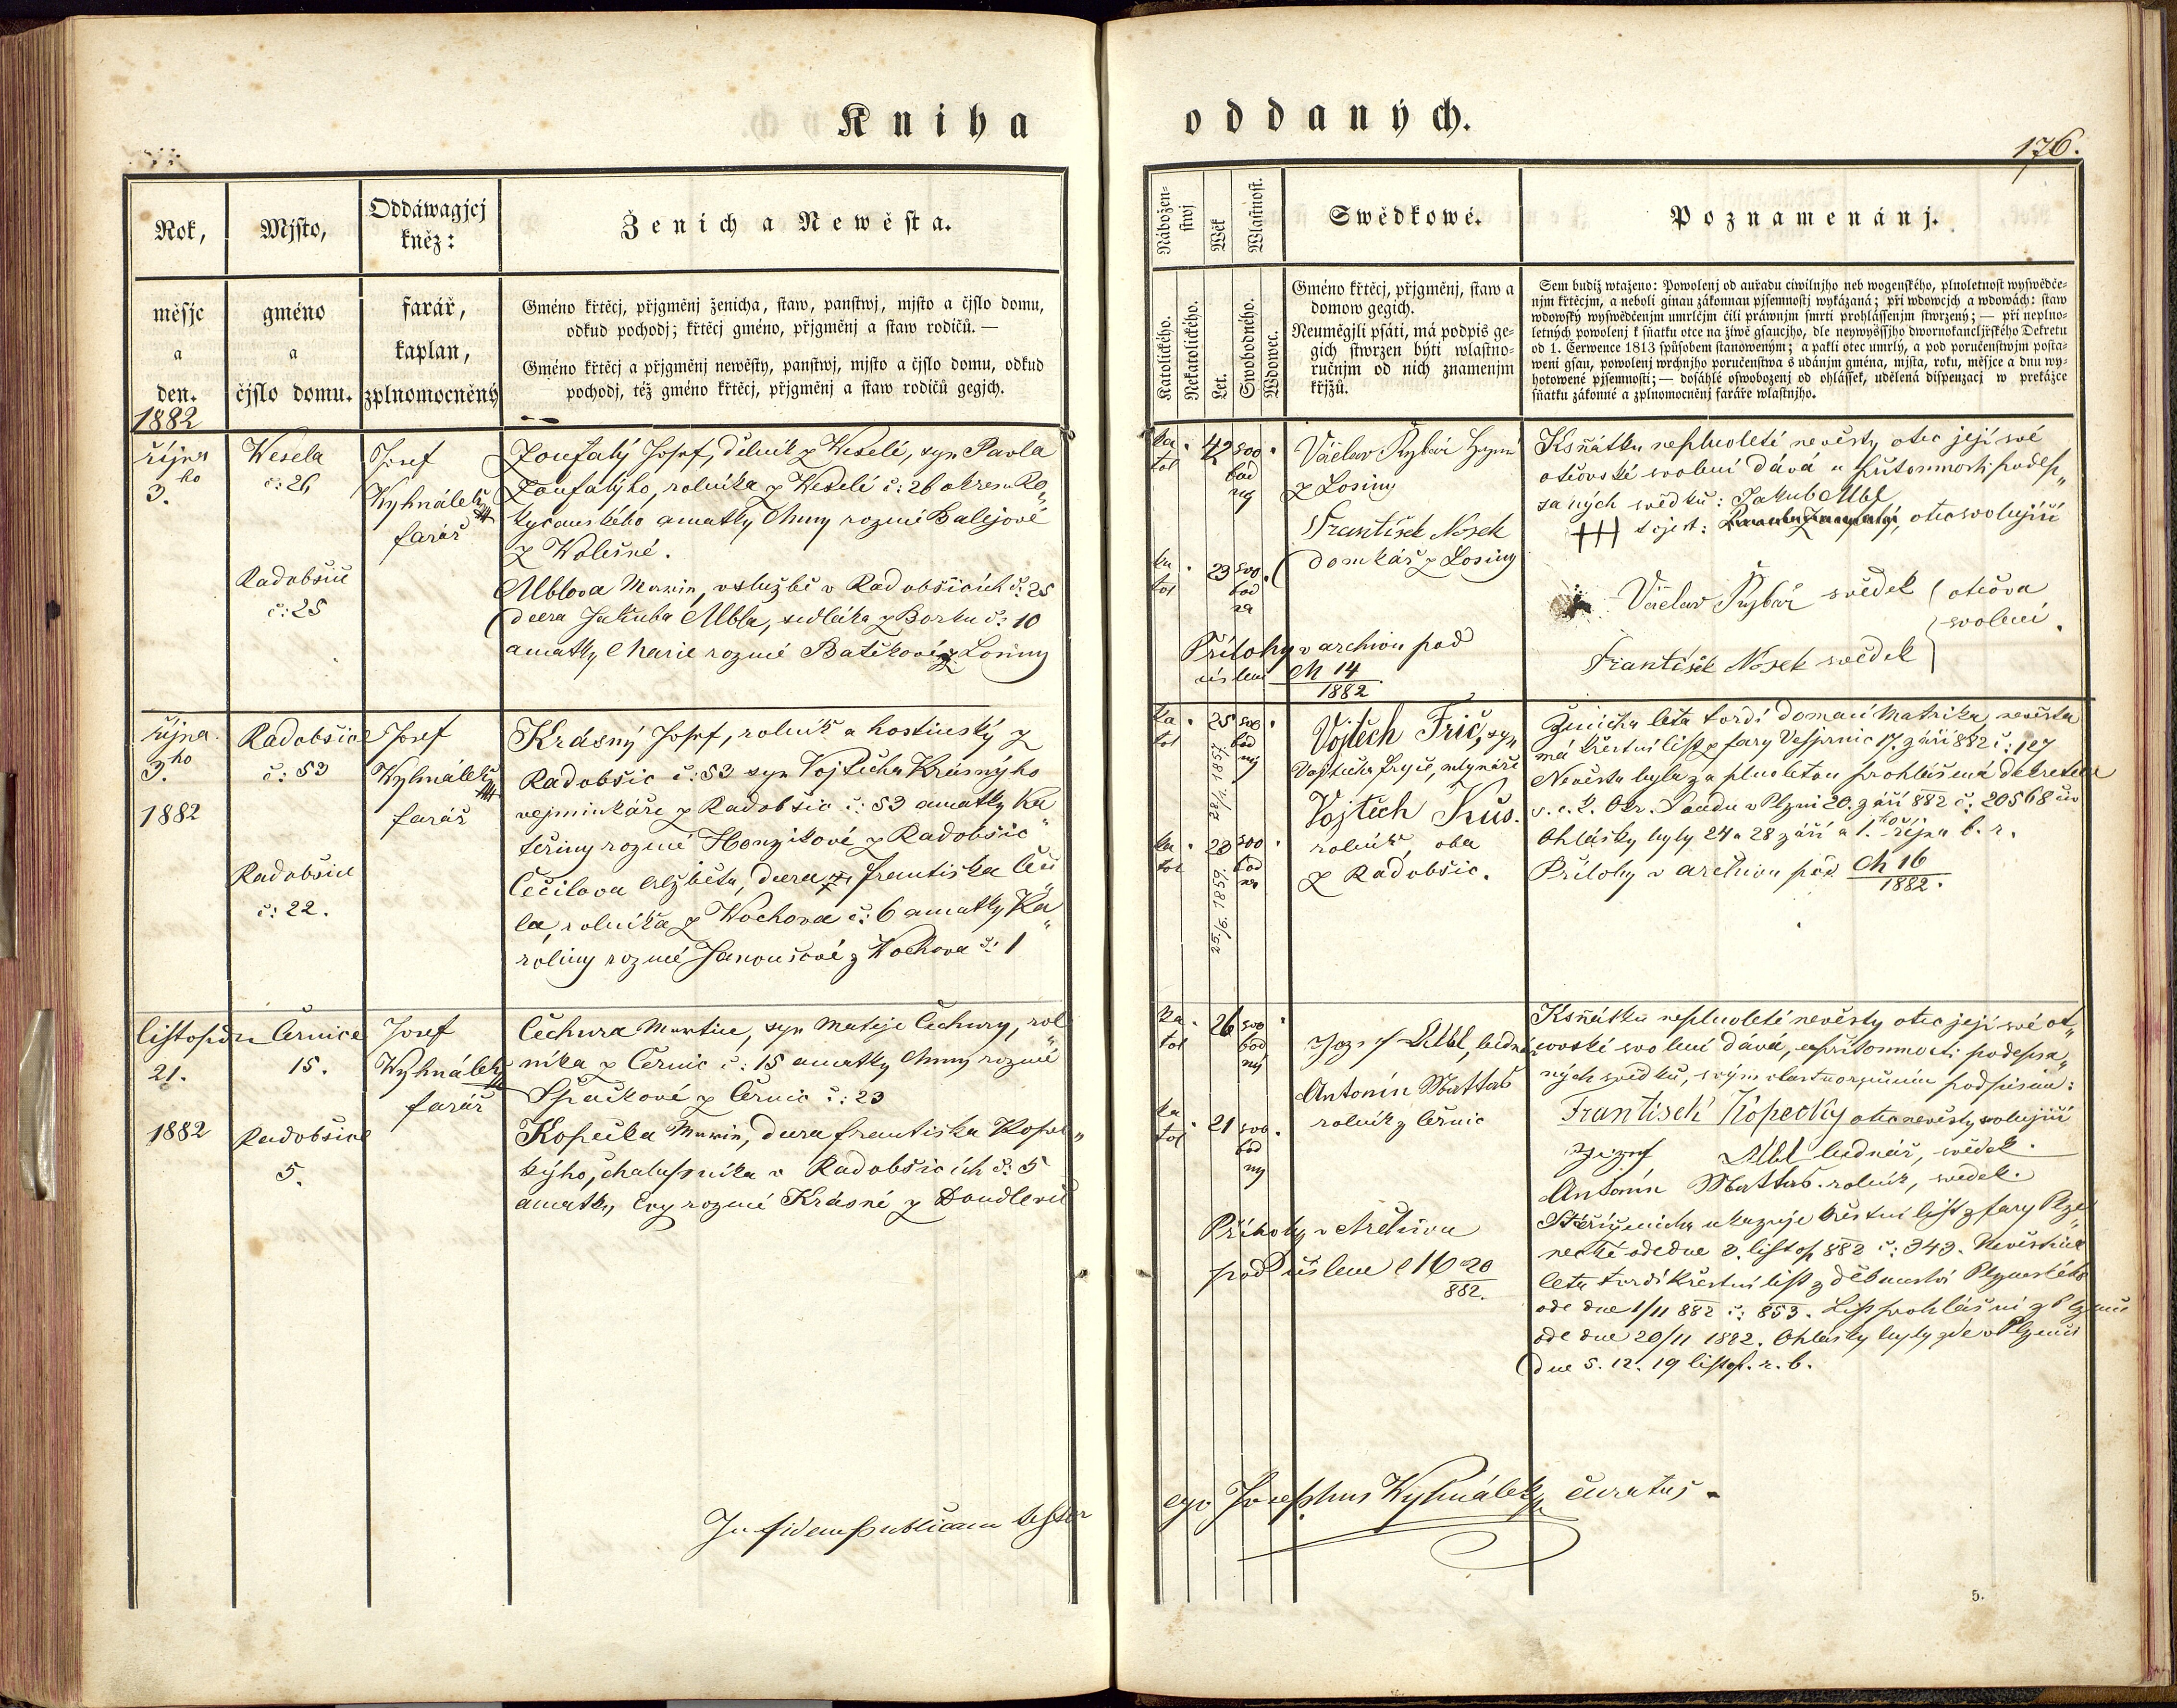 Kniha
oddaných.
176.
Rok,
měsjc
a
den.
1882
Mjsto,
gméno
a
čjslo domu.
Oddáwagjcj
kněz:
farář,
kaplan,
zplnomocněný
Ženich a Newěsta.
Gméno křtěcj, přjgměnj ženicha, staw, panstwj, mjsto a čjslo domu,
odkud pochodj; křtěcj gméno, přjgměnj a staw rodičů. —
Gméno křtěcj a přjgměnj newěsty, panstwj, mjsto a čjslo domu, odkud
pochodj, též gméno křtěcj, přjgměnj a staw rodičů gegjch.
Nábožen-
stwj
Katolického.
Nekatolického.
Wěk
Let.
Wlastnost.
Swobodného.
Wdowec.
Swědkowé.
Gméno křtěcj, přjgměnj, staw a
domow gegich.
Neumēgjli psáti, má podpis ge-
gich stwrzen býti wlastno-
ručnjm od nich znamenjm
křjžů.
Poznamenánj.
Sem budiž wtaženo: Powolenj od auřadu ciwilnjho neb wogenského, plnoletnost wyswědče-
njm křtěcjm, a neboli ginau zákonnau pjsemnostj wykázaná; při wdowcjch a wdowách: staw
wdowský wyswědčenjm umrlčjm čili práwnjm smrti prohlássenjm stwrzený; — při neplno-
letných powolenj k sňatku otce na žiwě gsaucjho, dle neywyššjho dwornokancljřského Dekretu
od 1. Čerwence 1813 způsobem stanoweným; a pakli otec umrlý, a pod poručenstwjm posta-
weni gsau, powolenj wrchnjho poručenstwa s udánjm gména, mjsta, roku, měsjce a dnu wy-
hotowené pjsemnosti; — dosáhlé oswobozenj od ohlássek, udělená dispenzacj w překážce
sňatku zákonné a zplnomocněnj faráře wlastnjho.
října
3. ho
Wesela
č: 26
Radobšic
č: 25
Josef
Wyhnálek
farář
Zoufalý Josef, dělník z Weselé, syn Pavla
Zoufalýho, rolníka z Weselé č: 26 okresu Ro„
kycanského a matky Anny rozené Balejové
z Wolešné.
Alblova Marie, v službě v Radobšicích č: 25
dcera Jakuba Albla, sedláka z Borku č: 10
a matky Marie rozené Batěkové z Losiny
ka
tol
42
svo
bod
ný
ka
tol
23
svo
bod
ná
Václav Rybár
z Losiny
František Nosek
domkář z Losiny
Přílohy v archivu pod
číslem M 14
1882
K sňatku neplnoleté nevěsty otec její své
otcovské svolení dává u přítomnosti podep„
saných svědků: Jakub Albl
+++ t. jest: otec svolující
Václav Rybár svědek
otcova
svolení.
František Nosek svědek
října
3. ho
1882
Radobšic
č: 53
Radobšic
č: 22.
Josef
Wyhnálek
farář
Krásný Josef, rolník a hostinský z
Radobšic č: 53 syn Vojtěcha Krásnýho
vejminkáře z Radobšic č: 53 a matky Ka
teřiny rozené Honzíkové z Radobšic
Čečilova Alžběta, dcera Františka Čeči
la, rolníka z Wochova č: 6 a matky Ka
roliny rozené Janoušové z Wochova č: 1
ka
tol
25
28/1. 1857
svo
bod
ný
ka
tol
23
25/6. 1859.
svo
bod
ná
Vojtěch Frič, syn
Vojtěcha Fryče, mlynáře
Vojtěch Kůs.
rolník, oba
z Radobšic.
Ženicha léta tvrdí domací Matrika, nevěsta
má křestní list z fary Vejprnic 17. září 882 č: 127
Nevěsta byla za plnoletou prohlášená dekretem
s. c. k. Okr. Soudu v Plzni 20. září 882 č: 20568 civ
Ohlášky byly 24 a 28 září a 1. ho října b. r.
Přílohy v archivu pod M 16
1882.
listopadu
21.
1882
Černice
15.
Radobšice
5.
Josef
Wyhnálek
farář
Čechura Martin, syn Matěje Čechury, rol
níka z Černic č: 15 a matky Anny rozené
Špačkové z Černic č: 23
Kopecka Marie, dcera Františka Kopec„
kýho, chalupníka v Radobšicích č: 5
a matky Evy rozené Krásné z Doudlevic
ka
tol
26
svo
bod
ný
ka
tol
21
svo
bod
ny
Jozef Albl, bednář
Antonín Mattas
rolník z Černic
Přílohy v Archivu
pod číslem M 20
882.
K sňatku neplnoleté nevěsty otec její své ot„
covské svolení dává, u přítomnosti podepsa„
ných svědků, svým vlastnoručním podpisem:
František Kopecky otec nevěsty svolující
Jozef Albl bednář, svědek.
Antonín Mattas. rolník, svědek.
Stáří ženicha ukazuje křestní list z fary Plze„
necké ode dne 2. listop 882 č: 343. Nevěstina
leta tvrdí křestní list z děkanství Plzenského
ode dne 1/11 882 č: 853. List prohlášní z Plzence
ode dne 20/11 1882. Ohlášky byly zde v Plzenci
dne 5. 12. 19 listop. r. b.
In fidem publicam testor
ego Josephus Wyhnálek curatus.
5.